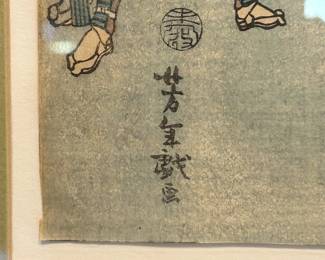 芳年戯画